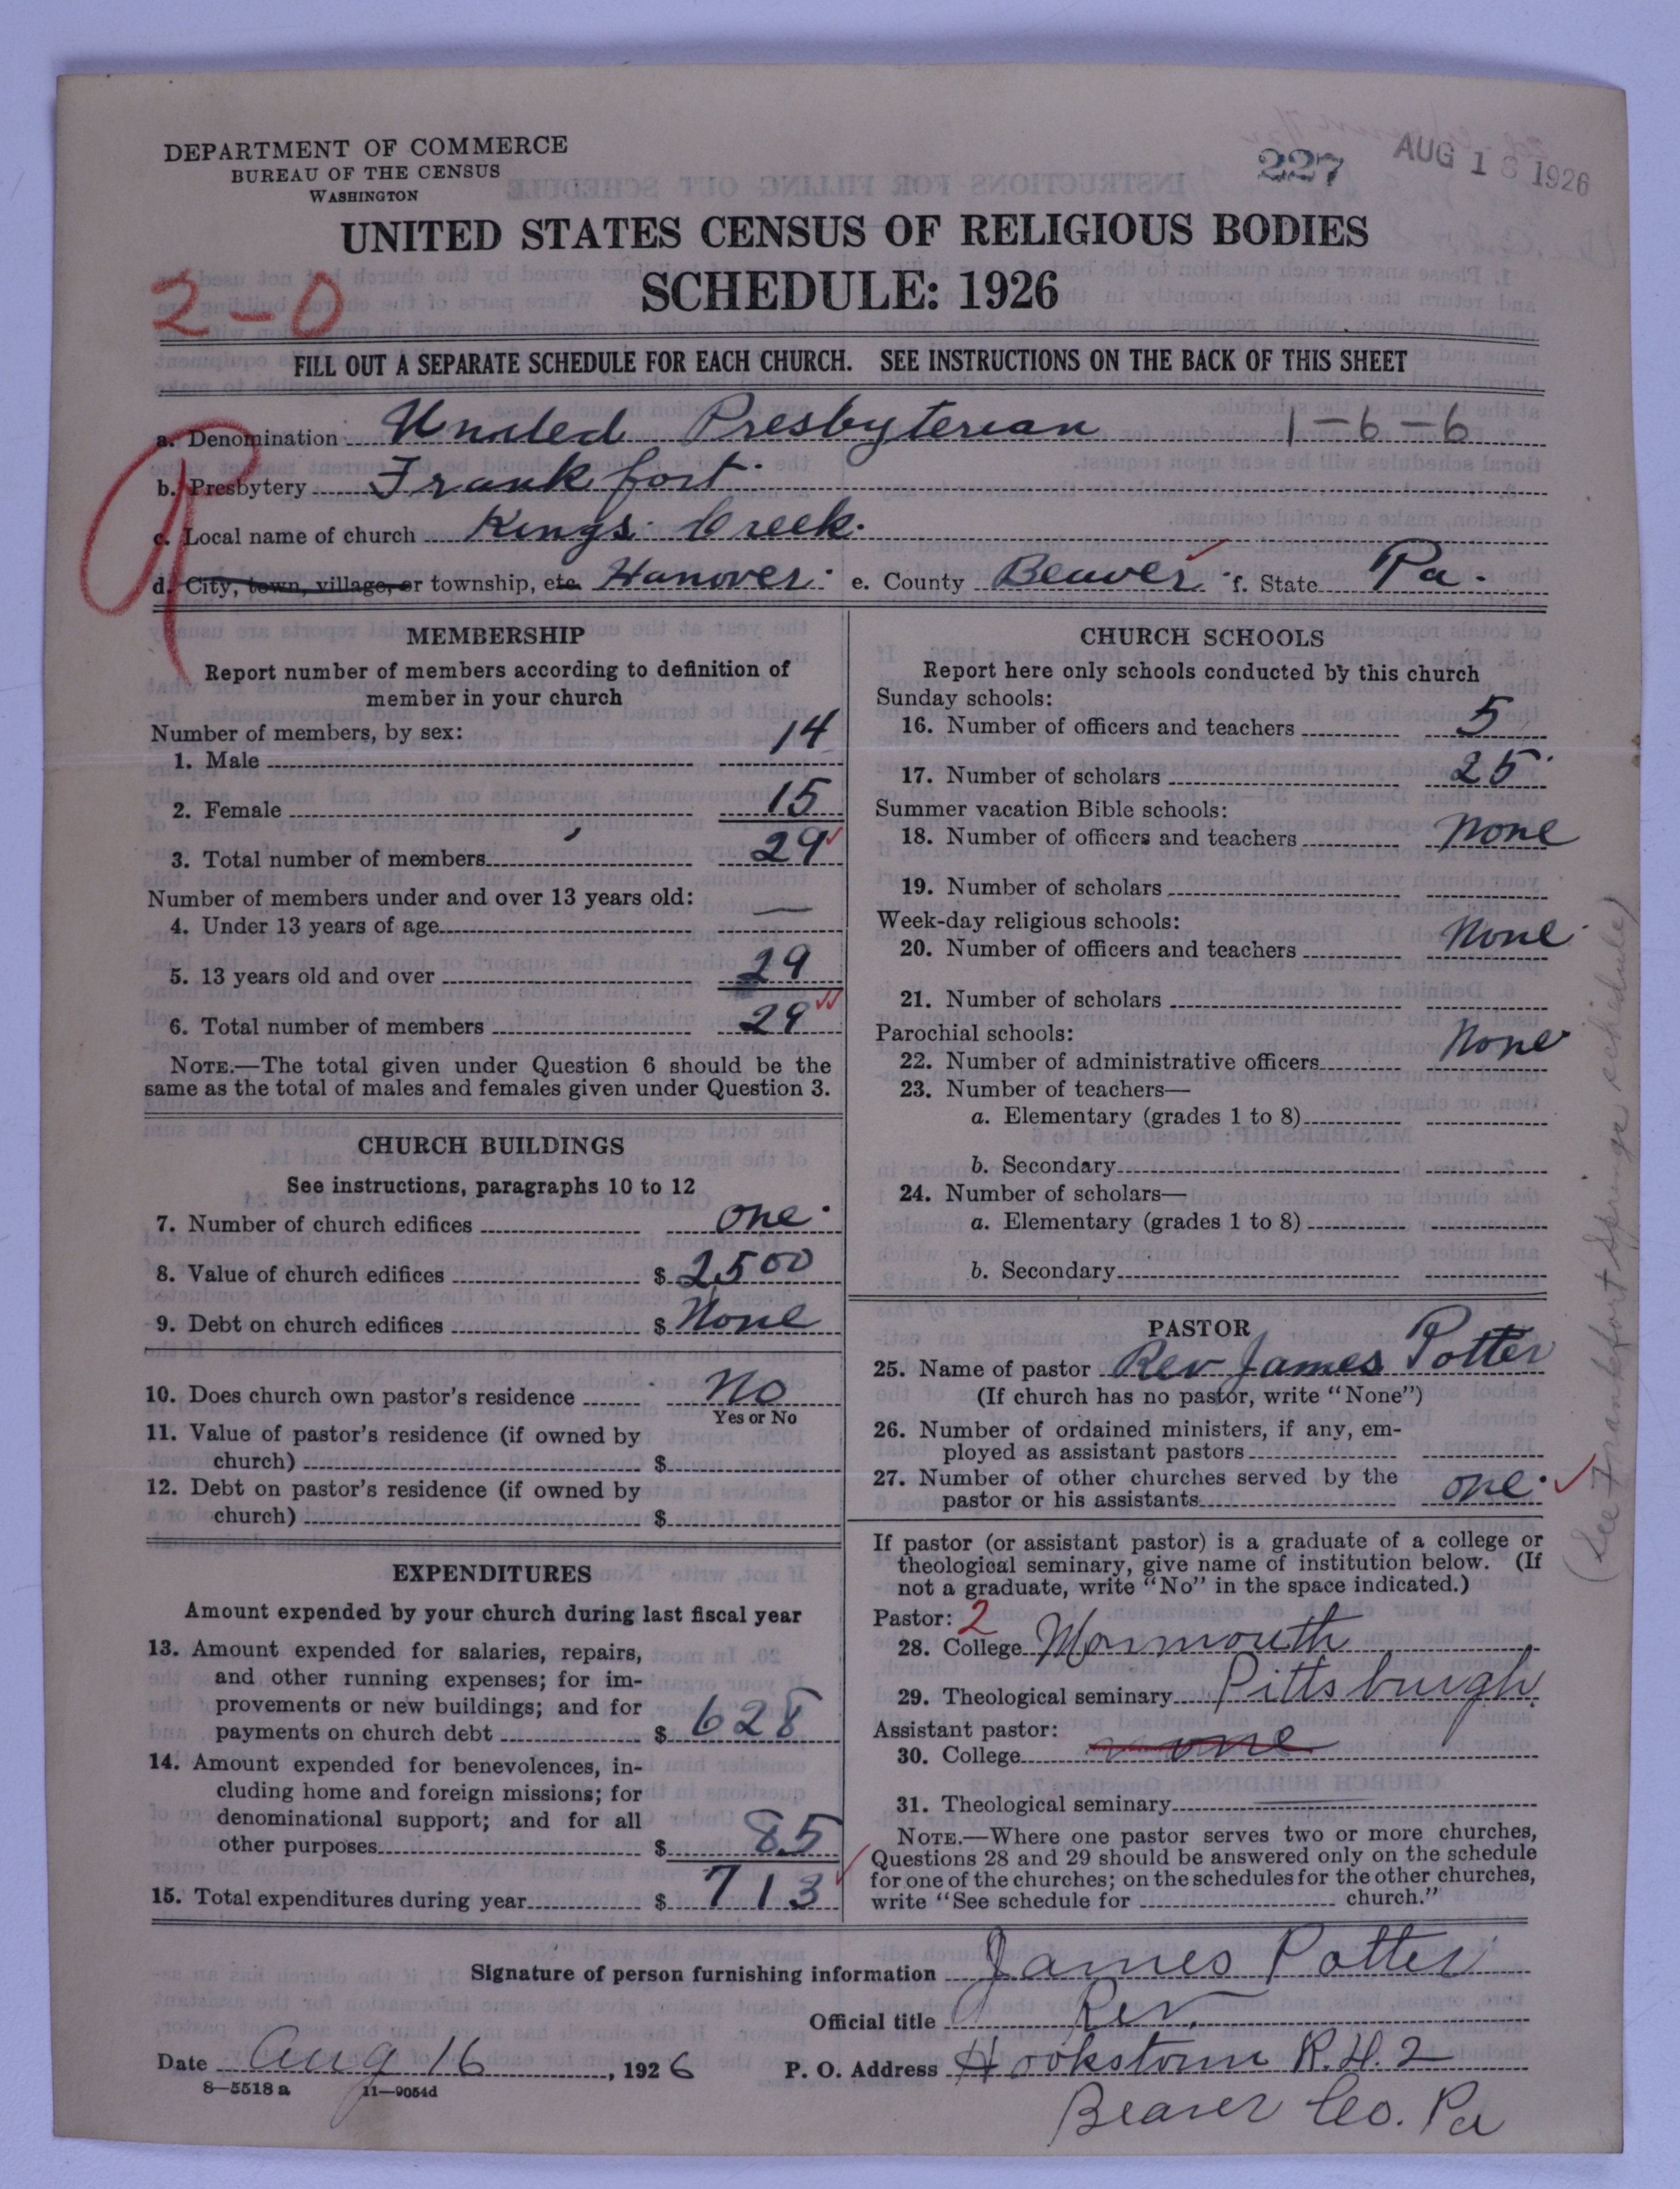 DEPARTMENT OF COMMERCE
BUREAU OF THE CENSUS
WASHINGTON
227
AUG 18 1926
UNITED STATES CENSUS OF RELIGIOUS BODIES
SCHEDULE: 1926
2-0
FILL OUT A SEPARATE SCHEDULE FOR EACH CHURCH. SEE INSTRUCTIONS ON THE BACK OF THIS SHEET
a. Denomination United Presbyterian 1-6-6
b. Presbytery Frankfort.
c. Local name of church Kings Creek.
d. City, town, village, or township, etc. Hanover. e. County Beaver. f. State Pa.
MEMBERSHIP
Report number of members according to definition of
member in your church
Number of members, by sex:
1. Male 14
2. Female 15
3. Total number of members 29
Number of members under and over 13 years old:
4. Under 13 years of age —
5. 13 years old and over 29
6. Total number of members 29
NOTE.—The total given under Question 6 should be the
same as the total of males and females given under Question 3.
CHURCH BUILDINGS
See instructions, paragraphs 10 to 12
7. Number of church edifices one.
8. Value of church edifices $ 2500
9. Debt on church edifices $ None
10. Does church own pastor's residence No
Yes or No
11. Value of pastor's residence (if owned by
church) $
12. Debt on pastor's residence (if owned by
church) $
EXPENDITURES
Amount expended by your church during last fiscal year
13. Amount expended for salaries, repairs,
and other running expenses; for im-
provements or new buildings; and for
payments on church debt $ 628
14. Amount expended for benevolences, in-
cluding home and foreign missions; for
denominational support; and for all
other purposes $ 85
15. Total expenditures during year $ 713
CHURCH SCHOOLS
Report here only schools conducted by this church
Sunday schools:
16. Number of officers and teachers 5
17. Number of scholars 25
Summer vacation Bible schools:
18. Number of officers and teachers None
19. Number of scholars
Week-day religious schools:
20. Number of officers and teachers None
21. Number of scholars
Parochial schools:
22. Number of administrative officers None
23. Number of teachers—
a. Elementary (grades 1 to 8)
b. Secondary
24. Number of scholars—
a. Elementary (grades 1 to 8)
b. Secondary
PASTOR
25. Name of pastor Rev James Potter
(If church has no pastor, write "None")
26. Number of ordained ministers, if any, em-
ployed as assistant pastors
27. Number of other churches served by the
pastor or his assistants one.
If pastor (or assistant pastor) is a graduate of a college or
theological seminary, give name of institution below. (If
not a graduate, write "No" in the space indicated.)
Pastor: 2
28. College Monmouth
29. Theological seminary Pittsburgh
Assistant pastor:
30. College none
31. Theological seminary
NOTE.—Where one pastor serves two or more churches,
Questions 28 and 29 should be answered only on the schedule
for one of the churches; on the schedules for the other churches,
write "See schedule for church."
(See Frankfort Springs schedule)
Signature of person furnishing information James Potter
Official title Rev.
Date Aug 16, 1926 P. O. Address Hookstown R.D. 2
Beaver Co. Pa
8-5518a 11-9054d